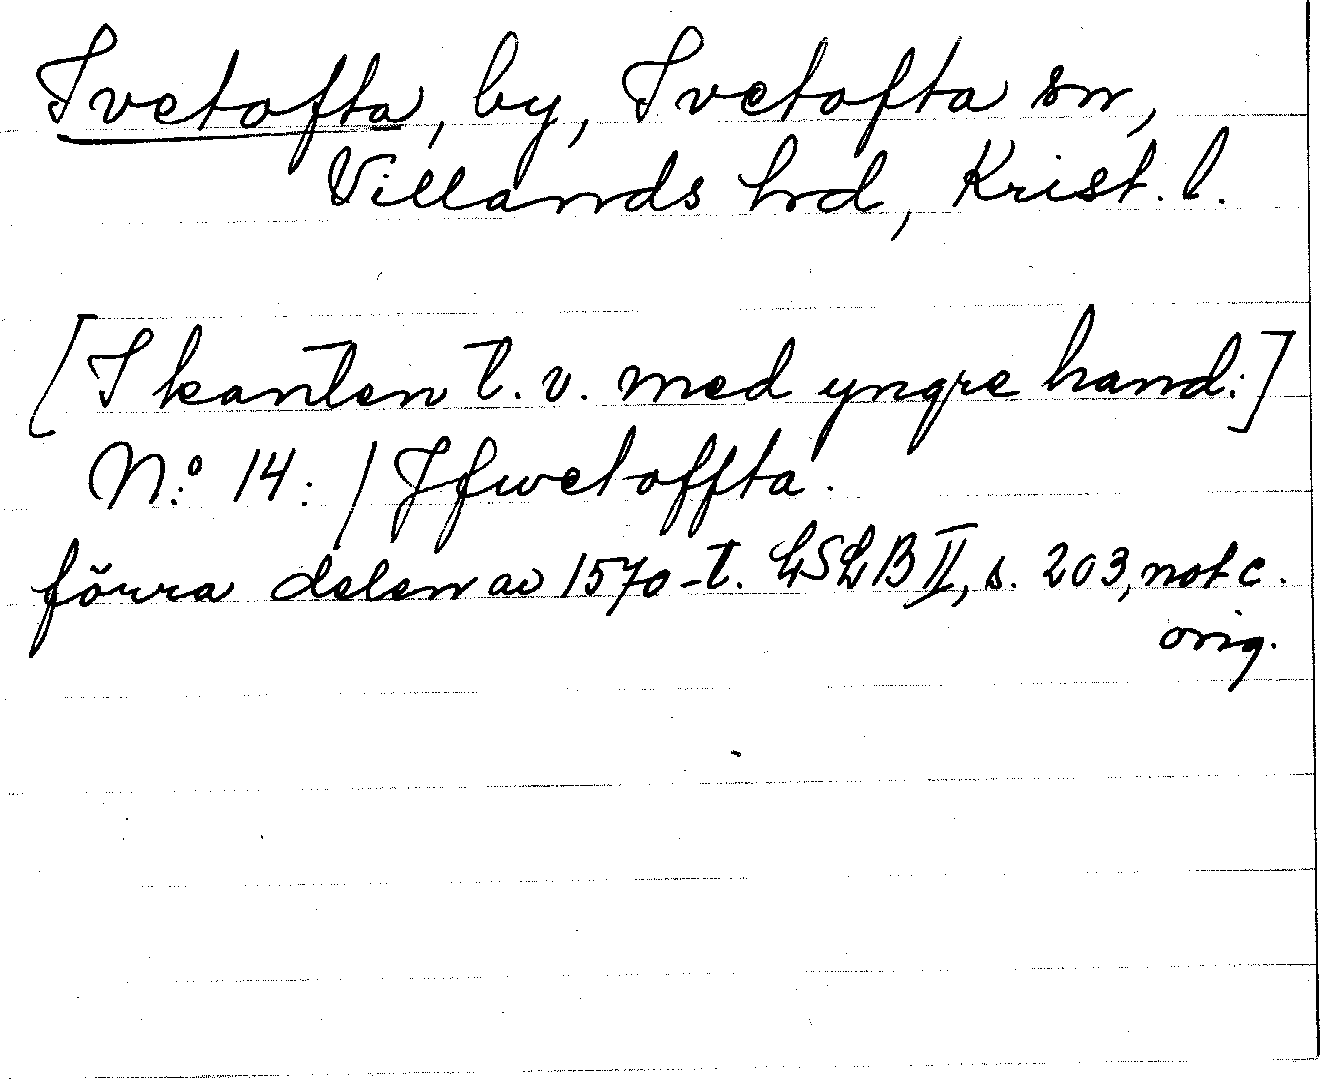 Ivetofta, by, Ivetofta sn,
Villands hrd, Krist. l.
[I kanten t. v. med yngre hand:]
N:o 14: / Jfwetoffta.
förra delen av 1570-t. LSLB II, s. 203, not c.
orig.